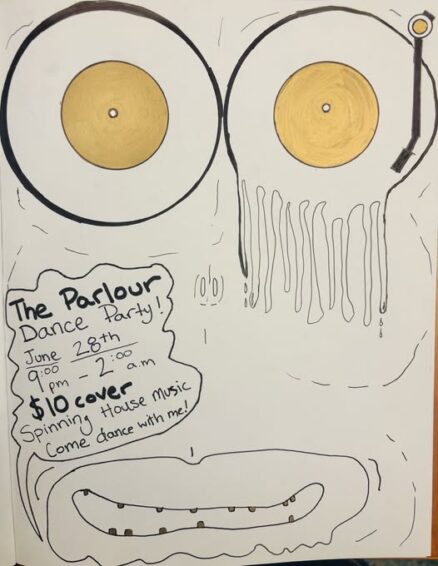 The Parlour
Dance Party!
June 28th
9:00 pm - 2:00 a.m
$10 cover
Spinning House Music
Come dance with me!